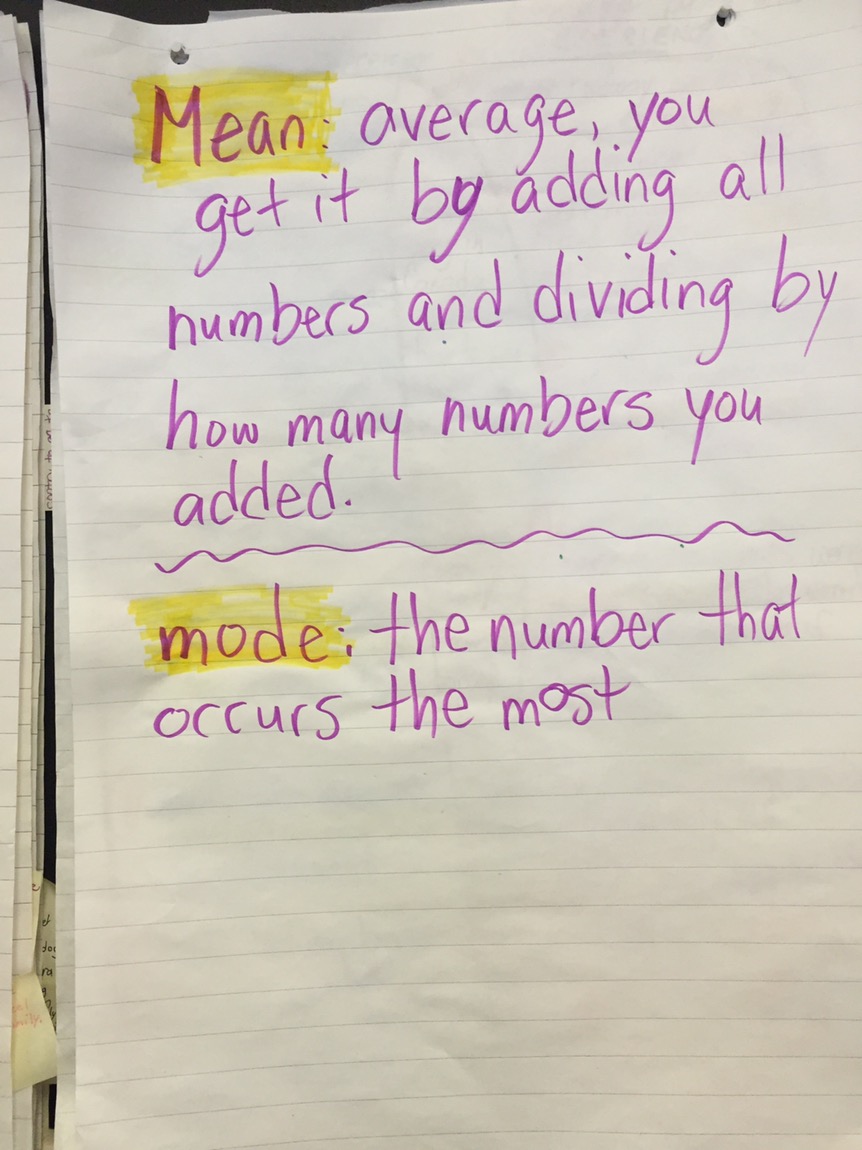 Mean: average, you
get it by adding all
numbers and dividing by
how many numbers you
added.
mode: the number that
occurs the most